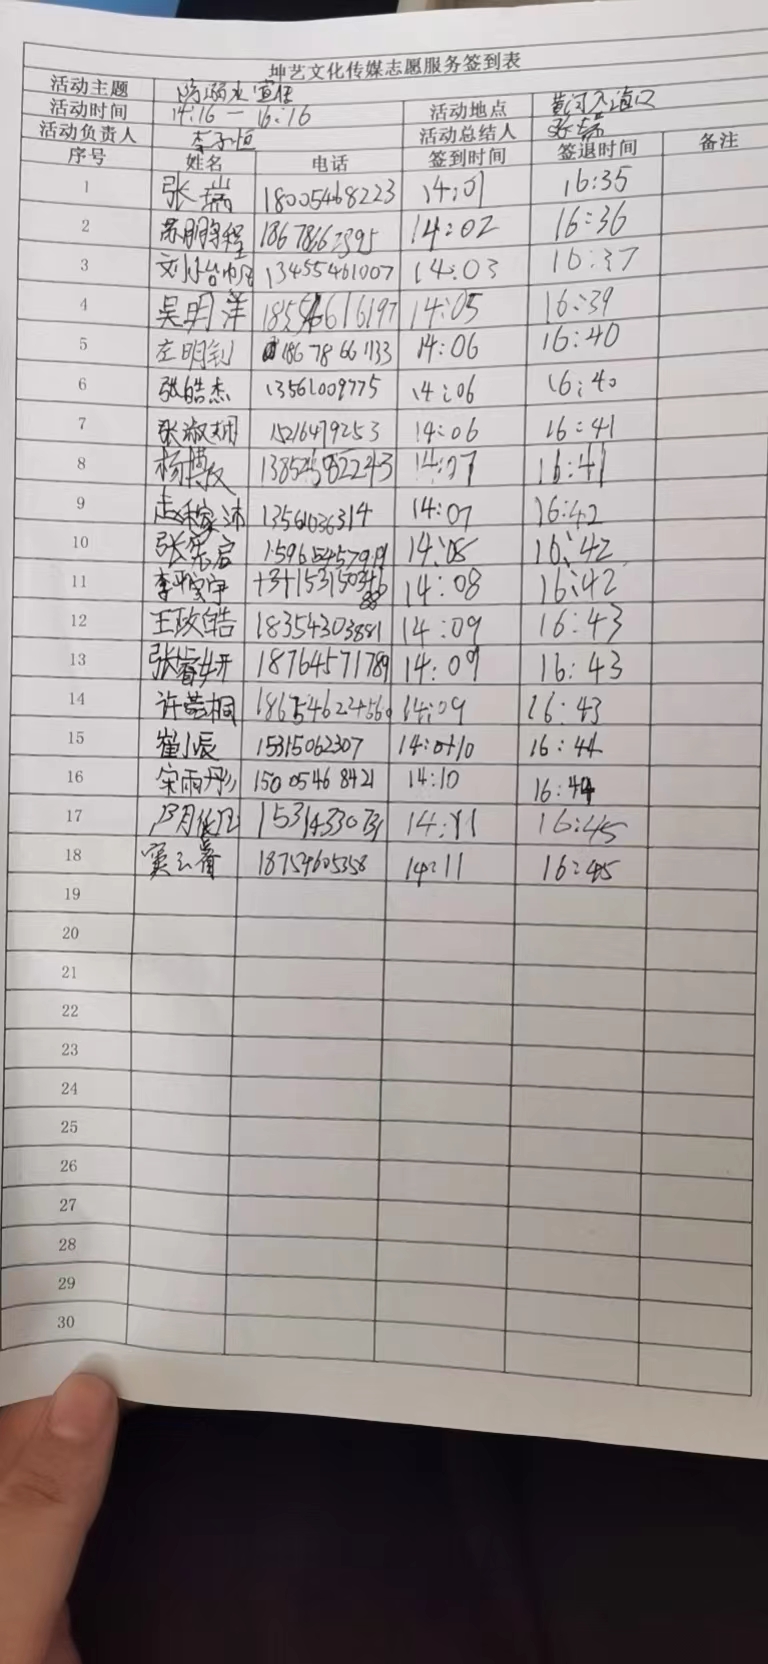 坤艺文化传媒志愿服务签到表
活动主题 防溺水宣传
活动时间 14:16 — 16:16 活动地点 黄河入海口
活动负责人 李子恒 活动总结人 张瑞
序号 姓名 电话 签到时间 签退时间 备注
1 张瑞 18005468223 14:01 16:35
2 14:02 16:36
3 13455461007 14:03 16:37
4 吴明洋 14:05 16:39
5 左明钊 18678661133 14:06 16:40
6 张皓杰 13561009775 14:06 16:40
7 张淑玥 15216479253 14:06 16:41
8 杨博文 14:07 16:41
9 13561036314 14:07 16:42
10 张宪启 14:08 16:42
11 14:08 16:42
12 王政皓 18354303881 14:09 16:43
13 张睿妍 18764571789 14:09 16:43
14 14:09 16:43
15 崔小宸 15315062307 14:10 16:44
16 宋雨彤 15005468421 14:10 16:44
17 14:11 16:45
18 18754605358 14:11 16:45
19
20
21
22
23
24
25
26
27
28
29
30